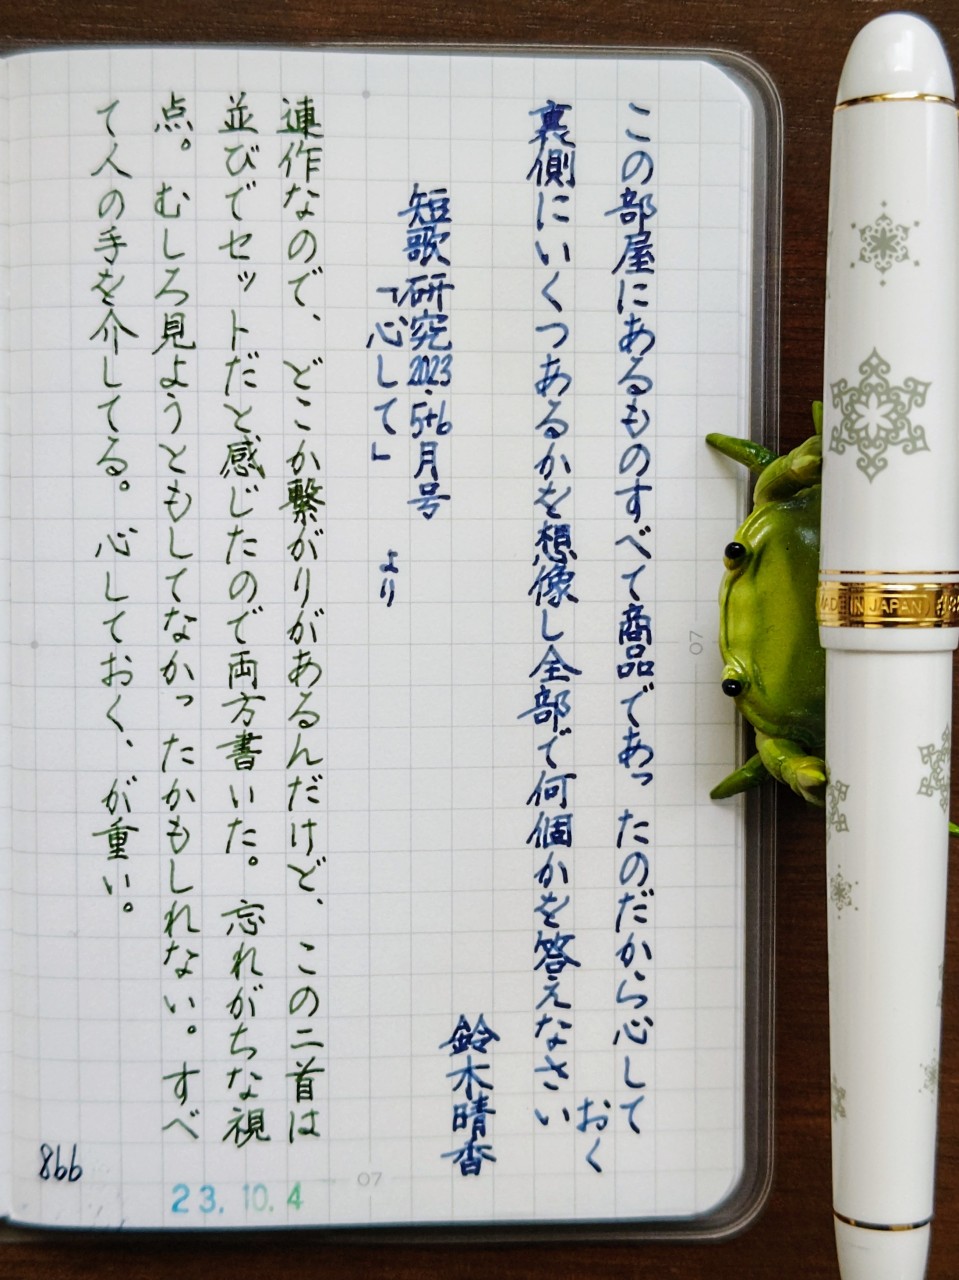 この部屋にあるものすべて商品であったのだから心して
おく
裏側にいくつあるかを想像し全部で何個かを答えなさい
鈴木晴香
短歌研究2023.5+6月号
「心して」 より
連作なので、どこか繋がりがあるんだけど、この二首は
並びでセットだと感じたので両方書いた。忘れがちな視
点。むしろ見ようともしてなかったかもしれない。すべ
て人の手を介してる。心しておく、が重い。
866
23.10.4
07
07
MADE IN JAPAN